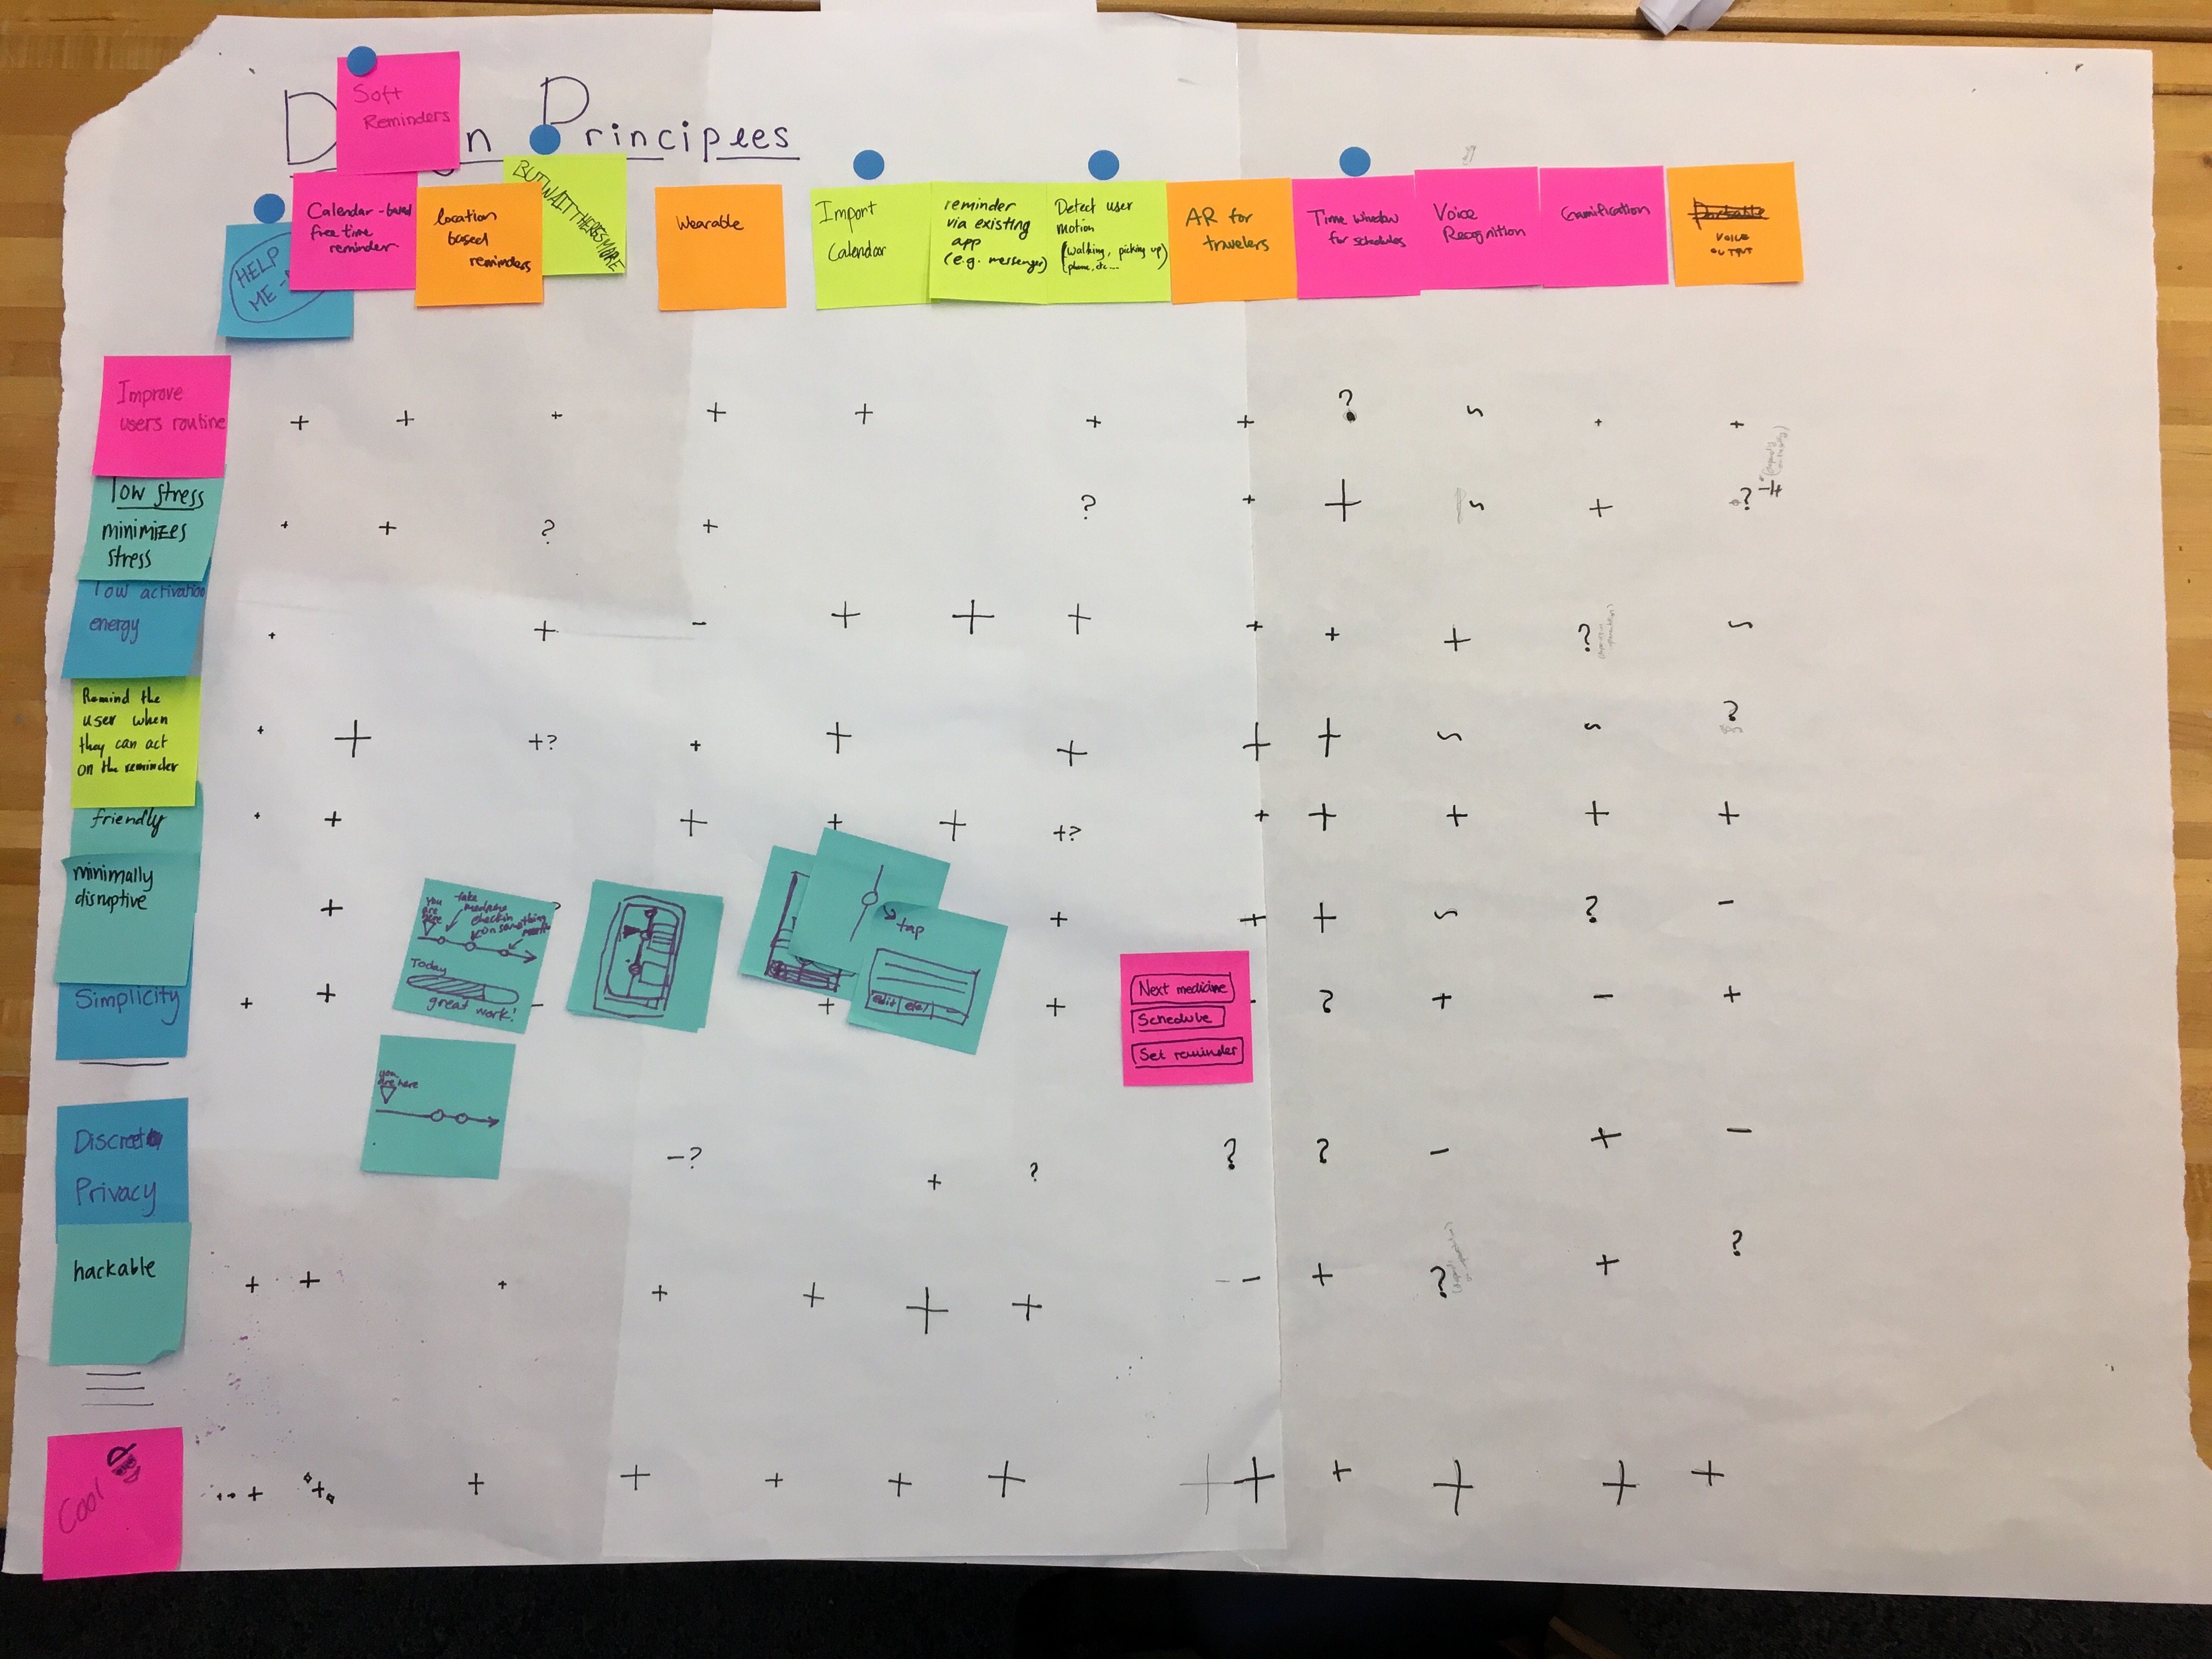 Soft
Reminders
D n Principles
HELP
ME -
Calendar-based
free time
reminder
location
based
reminders
BUT WAIT THERES MORE
Wearable
Import
Calendar
reminder
via existing
app
(e.g. messenger)
Detect user
motion
(walking, picking up
phone, etc...
AR for
travelers
Time window
for schedules
Voice
Recognition
Gamification
VOICE
OUTPUT
Improve
users routine
+ + + + + + + ? ~ + +
low stress
minimizes
stress
+ + ? + ? + + ~ + ?
low activation
energy
+ + - + + + + + + ? ~
Remind the
user when
they can act
on the reminder
+ + +? + + + + + ~ ~ ?
friendly
+ + + + + +? + + + + +
minimally
disruptive
+ ? + + + ~ ? -
Simplicity
+ + - + + - ? + - +
You
are
here
take
medicine
check in
on something
Today
great work!
tap
edit
Next medicine
Schedule
Set reminder
you
are here
Discreet
Privacy
-? + ? ? ? - + -
hackable
+ + + + + + + - - + ? + ?
Cool
+ + + + + + + + + + + +